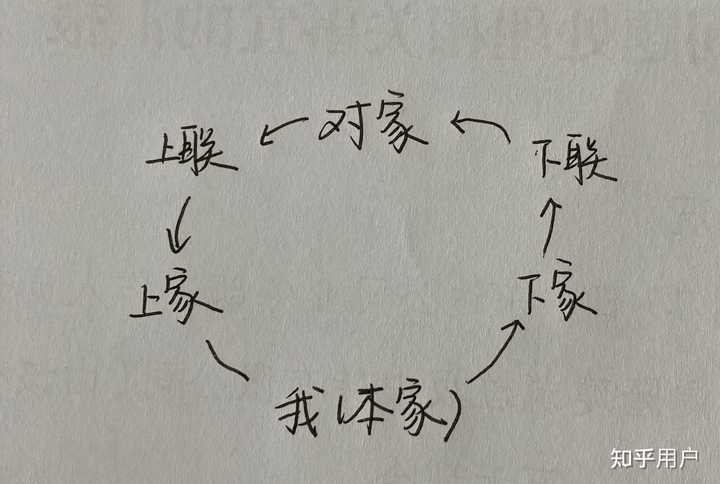 对家
上联
下联
上家
下家
我(本家)
知乎用户